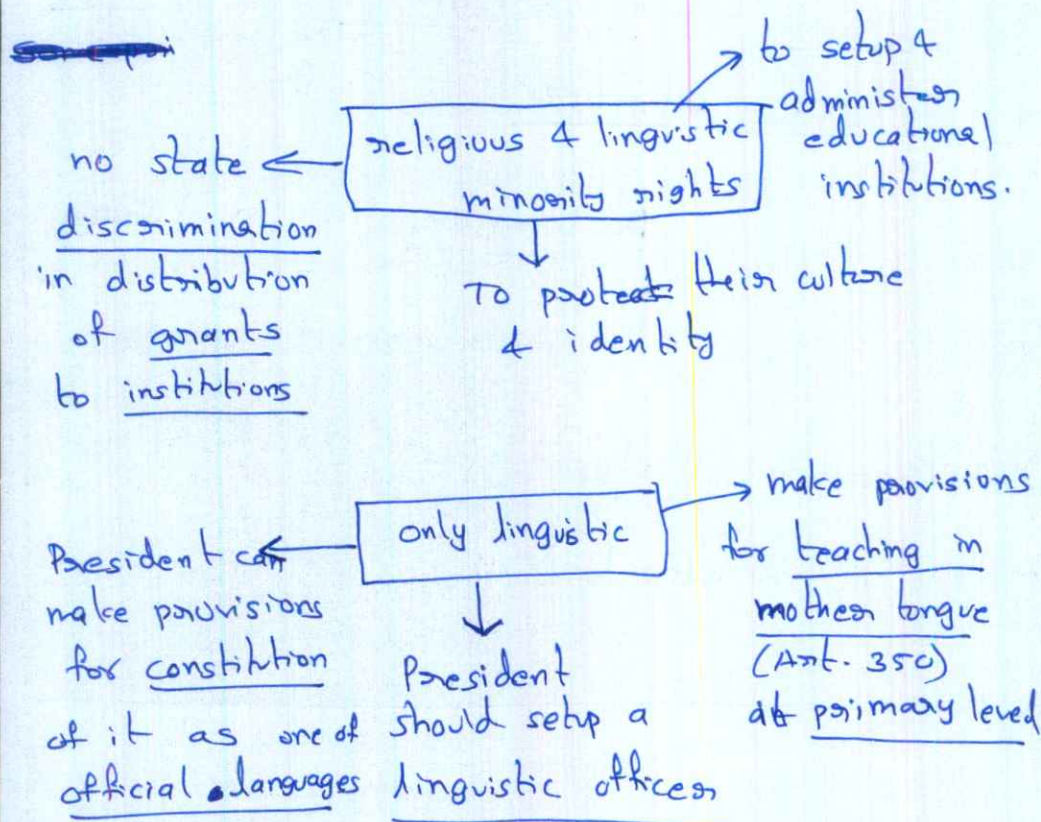 religious & linguistic
minority rights
to setup &
administer
educational
institutions.
no state
discrimination
in distribution
of grants
to institutions
To protect their culture
& identity
only linguistic
make provisions
for teaching in
mother tongue
(Art. 350)
at primary level
President can
make provisions
for constitution
of it as one of
official languages
President
should setup a
linguistic officer